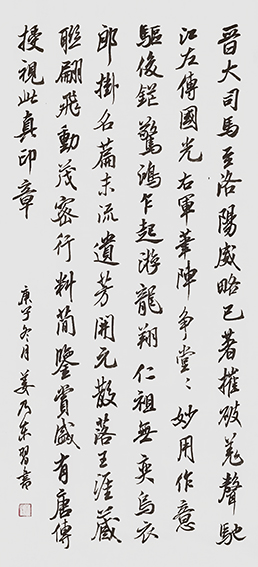 晉大司馬至洛陽威略已著摧破羌聲馳
江左傳國光右軍筆陣爭堂〻妙用作意
驅俊鋩驚鴻乍起游龍翔仁祖無奕烏衣
郎掛名篇末流遺芳開元散落王涯藏
聯翩飛動茂密行料簡鑒賞盛有唐傳
授視此真印章
庚子冬月姜乃东習書